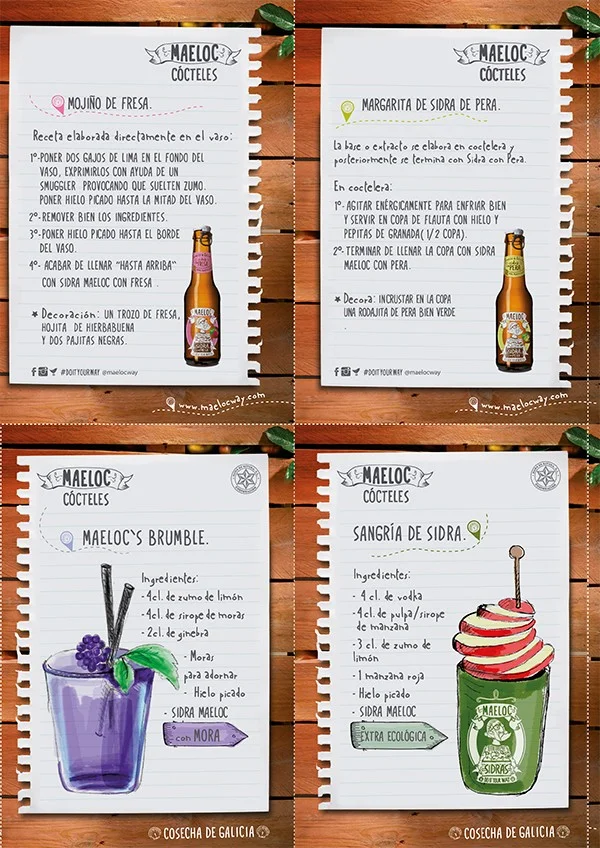 MAELOC
CÓCTELES
MOJIÑO DE FRESA.
Receta elaborada directamente en el vaso:
1º-PONER DOS GAJOS DE LIMA EN EL FONDO DEL
VASO, EXPRIMIRLOS CON AYUDA DE UN
SMUGGLER PROVOCANDO QUE SUELTEN ZUMO.
PONER HIELO PICADO HASTA LA MITAD DEL VASO.
2º-REMOVER BIEN LOS INGREDIENTES.
3º-PONER HIELO PICADO HASTA EL BORDE
DEL VASO.
4º- ACABAR DE LLENAR "HASTA ARRIBA"
CON SIDRA MAELOC CON FRESA .
★ Decoración: UN TROZO DE FRESA,
HOJITA DE HIERBABUENA
Y DOS PAJITAS NEGRAS.
FRESA
MAELOC
SIDRA
#DOITYOURWAY @maelocway
www.maelocway.com
MAELOC
CÓCTELES
MARGARITA DE SIDRA DE PERA.
La base o extracto se elabora en coctelera y
posteriormente se termina con Sidra con Pera.
En coctelera:
1º-AGITAR ENÉRGICAMENTE PARA ENFRIAR BIEN
Y SERVIR EN COPA DE FLAUTA CON HIELO Y
PEPITAS DE GRANADA( 1/2 COPA).
2º-TERMINAR DE LLENAR LA COPA CON SIDRA
MAELOC CON PERA.
★ Decora: INCRUSTAR EN LA COPA
UNA RODAJITA DE PERA BIEN VERDE
.
PERA
MAELOC
#DOITYOURWAY @maelocway
www.maelocway.com
MAELOC
CÓCTELES
MAELOC`S BRUMBLE.
Ingredientes:
-4cl. de zumo de limón
-4cl. de sirope de moras
-2cl. de ginebra
-Moras
para adornar
-Hielo picado
- SIDRA MAELOC
con MORA
COSECHA DE GALICIA
MAELOC
CÓCTELES
SANGRÍA DE SIDRA.
Ingredientes:
- 4 cl. de vodka
-4cl. de pulpa/sirope
de manzana
-3 cl. de zumo de
limón
-1 manzana roja
-Hielo picado
- SIDRA MAELOC
EXTRA ECOLÓGICA
MAELOC
SIDRAS
DO IT YOUR WAY
COSECHA DE GALICIA